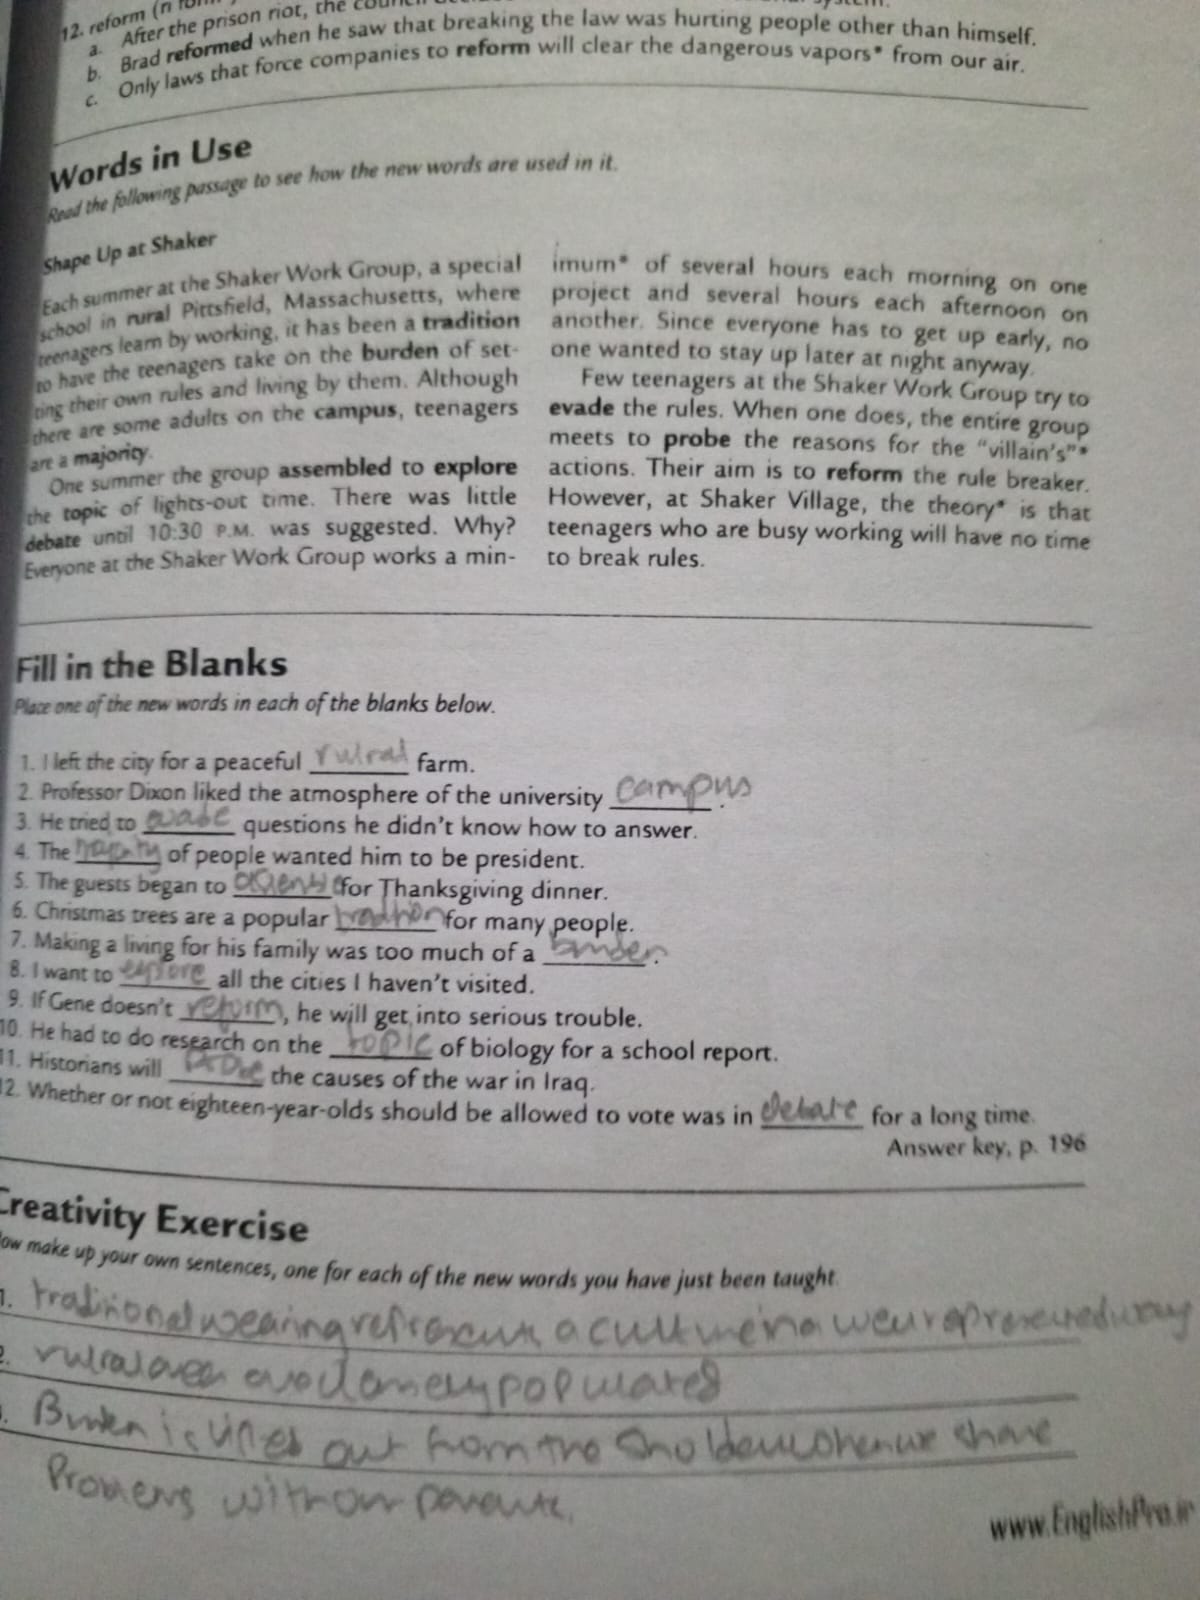 12. reform
a. After the prison riot, the council
b. Brad reformed when he saw that breaking the law was hurting people other than himself.
c. Only laws that force companies to reform will clear the dangerous vapors* from our air.
Words in Use
Read the following passage to see how the new words are used in it.
Shape Up at Shaker
Each summer at the Shaker Work Group, a special
school in rural Pittsfield, Massachusetts, where
teenagers learn by working, it has been a tradition
to have the teenagers take on the burden of set-
ting their own rules and living by them. Although
there are some adults on the campus, teenagers
are a majority.
One summer the group assembled to explore
the topic of lights-out time. There was little
debate until 10:30 P.M. was suggested. Why?
Everyone at the Shaker Work Group works a min-
imum* of several hours each morning on one
project and several hours each afternoon on
another. Since everyone has to get up early, no
one wanted to stay up later at night anyway.
Few teenagers at the Shaker Work Group try to
evade the rules. When one does, the entire group
meets to probe the reasons for the "villain's"*
actions. Their aim is to reform the rule breaker.
However, at Shaker Village, the theory* is that
teenagers who are busy working will have no time
to break rules.
Fill in the Blanks
Place one of the new words in each of the blanks below.
1. I left the city for a peaceful rulral farm.
2. Professor Dixon liked the atmosphere of the university campus.
3. He tried to evade questions he didn't know how to answer.
4. The of people wanted him to be president.
5. The guests began to for Thanksgiving dinner.
6. Christmas trees are a popular tradition for many people.
7. Making a living for his family was too much of a burden.
8. I want to explore all the cities I haven't visited.
9. If Gene doesn't reform, he will get into serious trouble.
10. He had to do research on the topic of biology for a school report.
11. Historians will probe the causes of the war in Iraq.
12. Whether or not eighteen-year-olds should be allowed to vote was in debate for a long time.
Answer key, p. 196
Creativity Exercise
Now make up your own sentences, one for each of the new words you have just been taught.
1. traditional wearing a culture
2. rulral populated
Burden is out from the when we share
Problems with our parents.
www.EnglishPro.ir